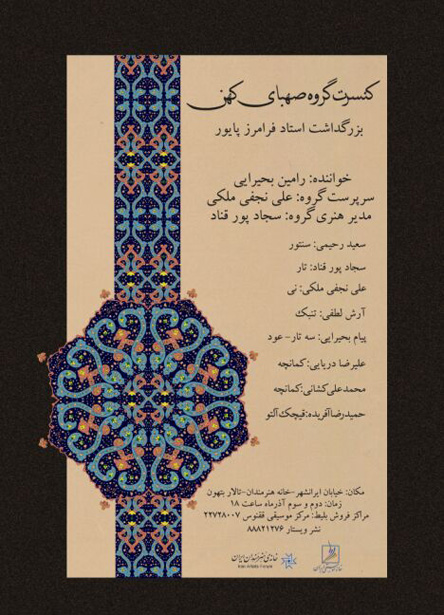 کنسرت گروه صهبای کهن
بزرگداشت استاد فرامرز پایور
خواننده: رامین بحیرایی
سرپرست گروه: علی نجفی ملکی
مدیر هنری گروه: سجاد پور قناد
سعید رحیمی: سنتور
سجاد پور قناد: تار
علی نجفی ملکی: نی
آرش لطفی: تنبک
پیام بحیرایی: سه تار- عود
علیرضا دریایی: کمانچه
محمدعلی کشانی: کمانچه
حمیدرضا آفریده: قیچک آلتو
مکان: خیابان ایرانشهر -خانه هنرمندان-تالار بتهون
زمان: دوم و سوم آذرماه ساعت ۱۸
مراکز فروش بلیط: مرکز موسیقی ققنوس ۲۲۷۲۸۰۰۷
نشر ویستار ۸۸۸۲۱۲۷۶
خانه هنرمندان ایران
Iran Artists Forum